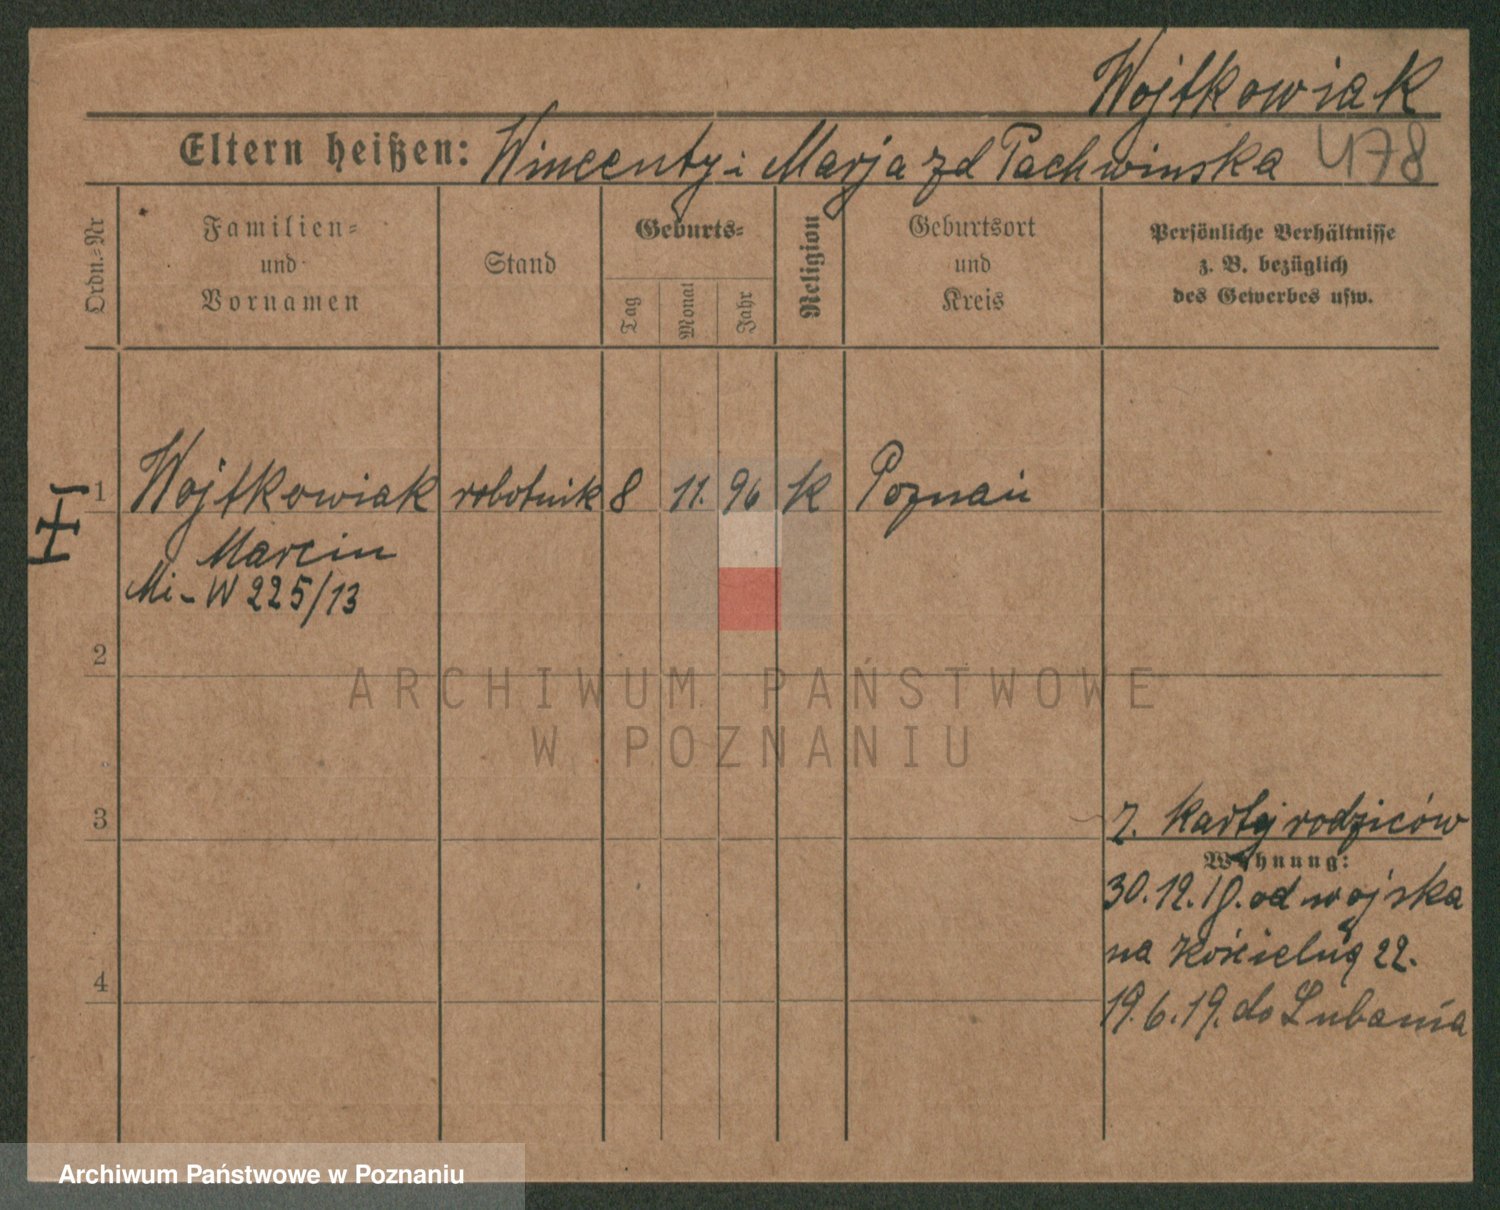 Wojtkowiak
Eltern heißen: Wincenty i Marja zd Pachwinska 478
Ordn.-Nr
Familien-
und
Vornamen
Stand
Geburts-
Tag
Monat
Jahr
Religion
Geburtsort
und
Kreis
Persönliche Verhältnisse
z. B. bezüglich
des Gewerbes usw.
1 Wojtkowiak robotnik 8 11. 96 K Poznań
Marcin
Mi-W 225/13
2
ARCHIWUM PAŃSTWOWE
W POZNANIU
3
z. karty rodziców
Wohnung:
30.12.18. od wojska
na Kościelną 22.
4
19.6.19. do Lubania
Archiwum Państwowe w Poznaniu